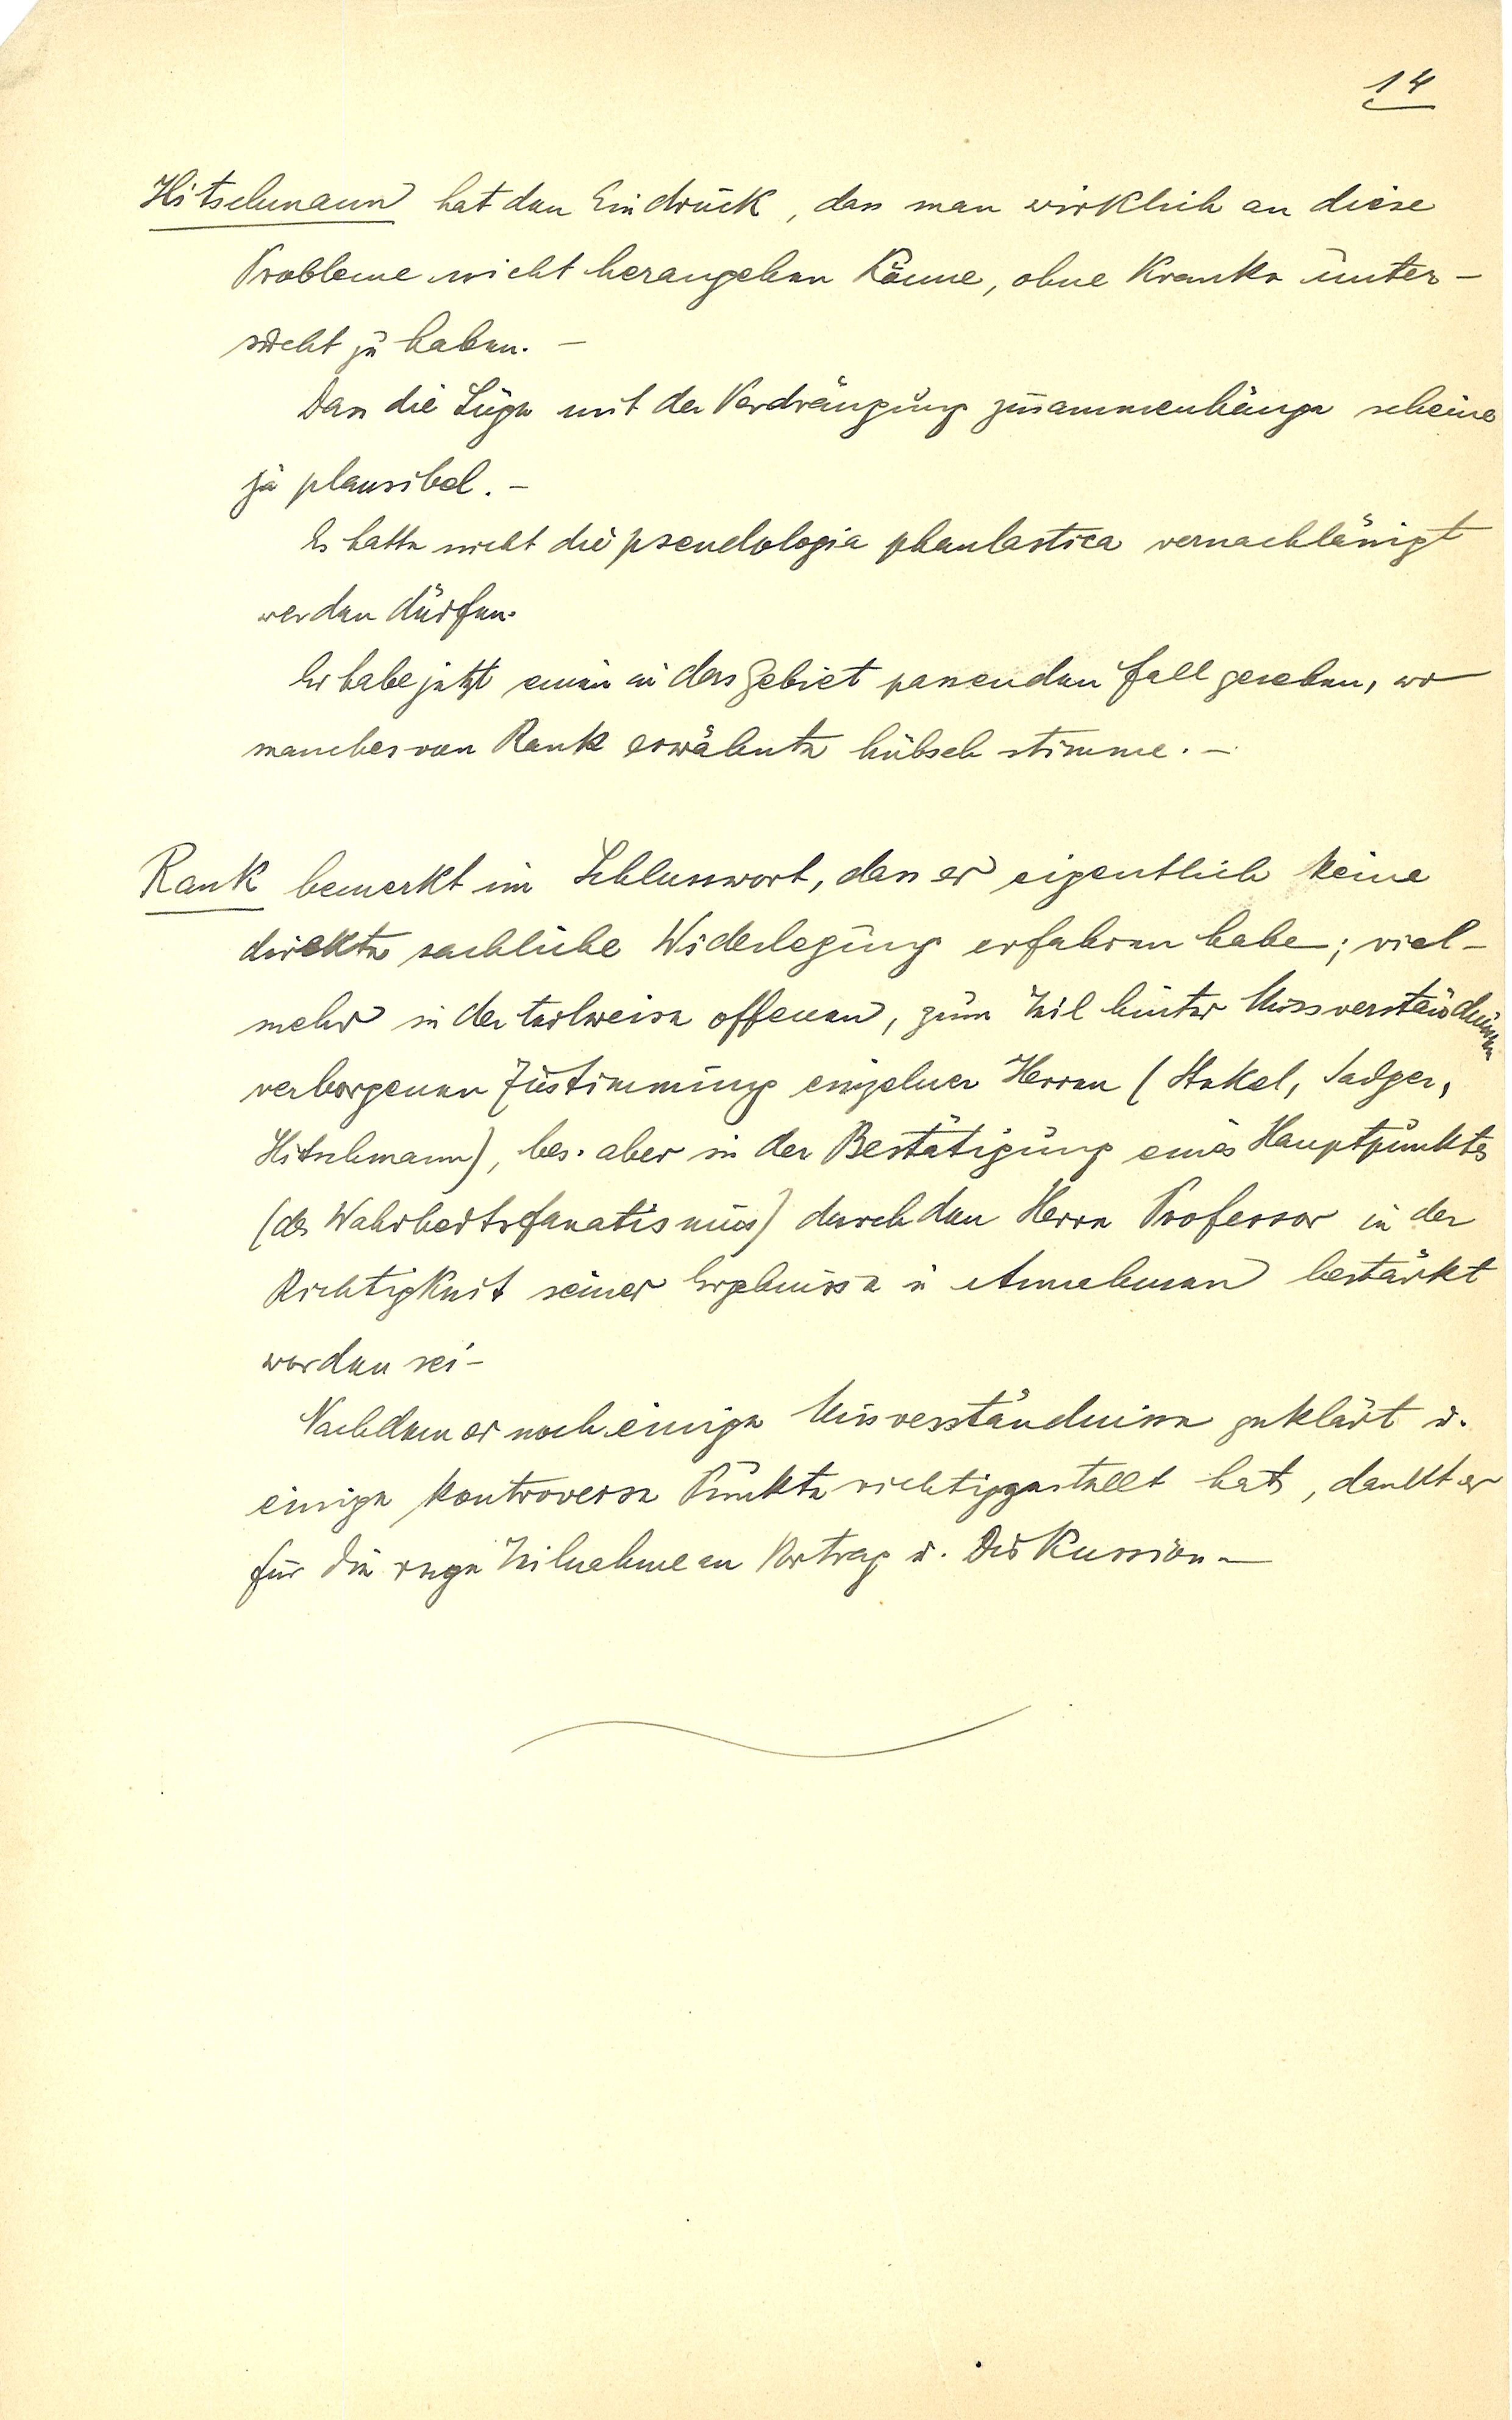 14
Hitschmann hat den Eindruck, dass man wirklich an diese
Probleme nicht herangehen könne, ohne Kranke unter-
sucht zu haben. –
Dass die Lüge mit der Verdrängung zusammenhänge scheine
ja plausibel. –
Es hätte nicht die pseudologia phantastica vernachlässigt
werden dürfen.
Er habe jetzt einen in das Gebiet passenden Fall gesehen, wo
manches von Rank erwähnte hübsch stimme. –
Rank bemerkt im Schlusswort, dass er eigentlich keine
direkte sachliche Widerlegung erfahren habe; viel-
mehr in der teilweise offenen, zum Teil hinter Missverständnissen
verborgenen Zustimmung einzelner Herren (Stekel, Sadger,
Hitschmann), bes. aber in der Bestätigung eines Hauptpunktes
(des Wahrheitsfanatismus) durch den Herrn Professor in der
Richtigkeit seiner Ergebnisse u Annahmen bestärkt
worden sei –
Nachdem er noch einige Missverständnisse geklärt u.
einige kontroverse Punkte richtiggestellt hat, dankt er
für die rege Teilnahme an Vortrag u. Diskussion –